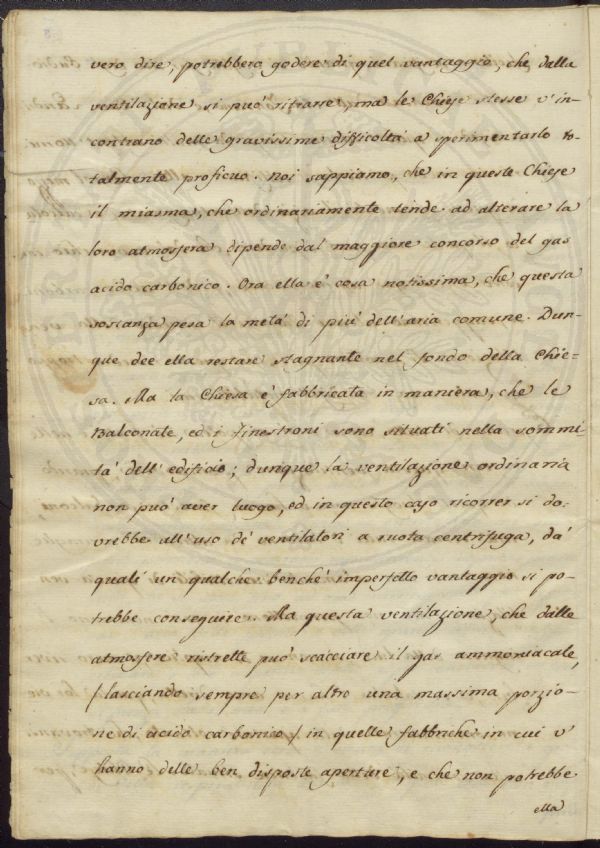 vero dire, potrebbero godere di quel vantaggio, che dalla
ventilazione si può ritrarse, ma le Chiese stesse v'in-
contrano delle gravissime difficoltà a sperimentarlo to-
talmente proficuo. Noi sappiamo, che in queste Chiese
il miasma, che ordinariamente tende ad alterare la
loro atmosfera dipende dal maggiore concorso del gas
acido carbonico. Ora ella è cosa notissima, che questa
sostanza pesa la metà di più dell'aria comune. Dun-
que dee ella restare stagnante nel fondo della Chie-
sa. Ma la Chiesa è fabbricata in maniera, che le
Balconate, ed i finestroni sono situati nella sommi-
tà dell'edificio; dunque la ventilazione ordinaria
non può aver luogo, ed in questo caso ricorrer si do-
vrebbe all'uso de' ventilatori a ruota centrifuga, da'
quali un qualche benchè imperfetto vantaggio si po-
trebbe conseguire. Ma questa ventilazione, che dalle
atmosfere ristrette può scacciare il gas ammoniacale,
/ lasciando sempre per altro una massima porzio-
ne di acido carbonico / in quelle fabbriche in cui v'
hanno delle ben disposte aperture, e che non potrebbe
ella